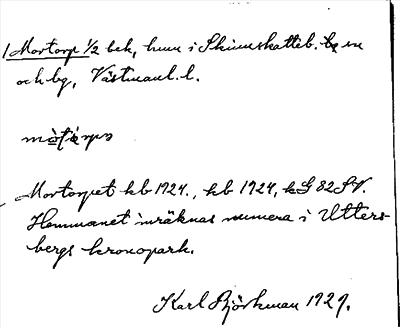 Mortorp 1/2 bek, hmn i Skinnskatteb. sn
och bg, Västmanl. l.
Mortorpet kb 1924., hb 1924, G 82 SV.
Hemmanet inräknas numera i Utters-
bergs kronopark.
Karl Björkman 1929.